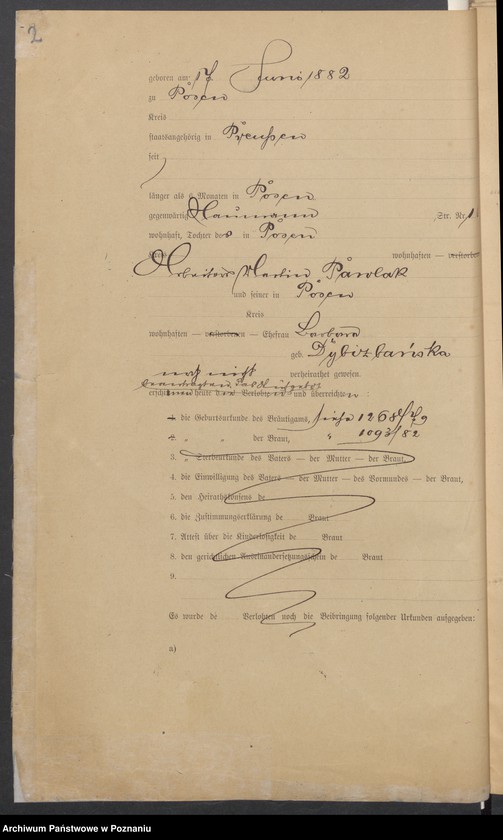 2
geboren am 17 Juni 1882
zu Posen
Kreis
staatsangehörig in Preußen
seit
länger als 6 Monaten in Posen
gegenwärtig Naumann Str. Nr. 1
wohnhaft, Tochter des in Posen
Kreis wohnhaften — verstorbenen
Arbeiters Martin Pawlak
und seiner in Posen
Kreis
wohnhaften — verstorbenen — Ehefrau Barbara
geb. Dybizbańska
noch nicht verheirathet gewesen.
beantragten das Aufgebot
erschienen heute die Verlobten und überreichten :
1. die Geburtsurkunde des Bräutigams, siehe 1268/79
2. " " der Braut, " 1093/82
3. " Sterbeurkunde des Vaters — der Mutter — der Braut,
4. die Einwilligung des Vaters — der Mutter — des Vormundes — der Braut,
5. den Heirathskonsens de
6. die Zustimmungserklärung de Braut
7. Attest über die Kinderlosigkeit de Braut
8. den gerichtlichen Auseinandersetzungsschein de Braut
9.
Es wurde de Verlobten noch die Beibringung folgender Urkunden aufgegeben:
a)
Archiwum Państwowe w Poznaniu